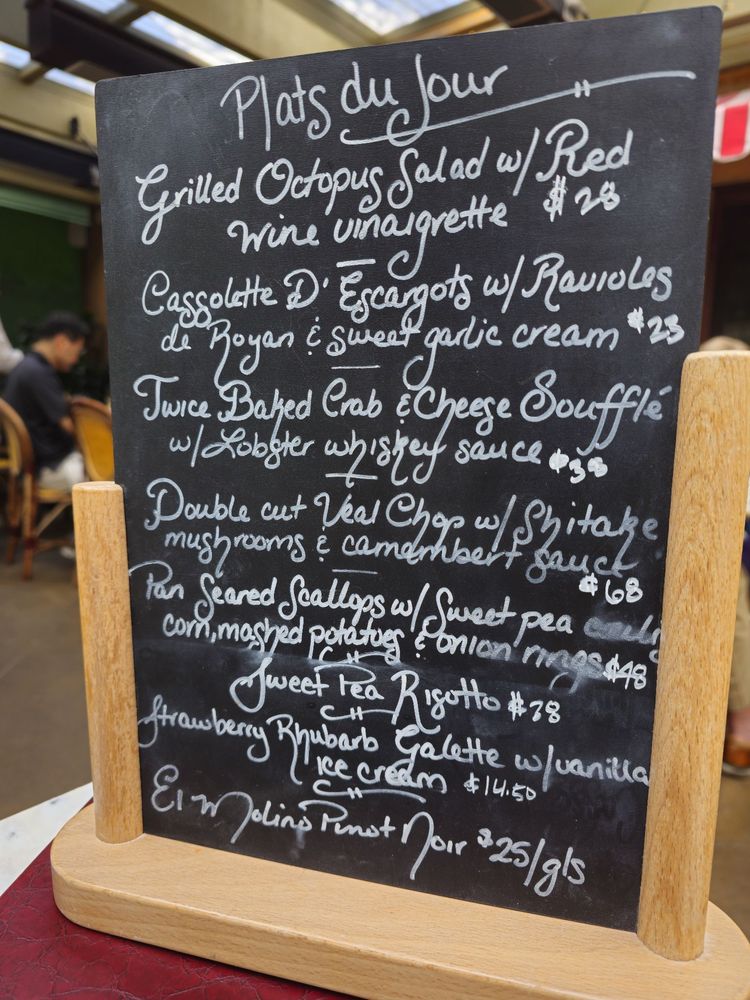 Plats du Jour
Grilled Octopus Salad w/ Red
Wine vinaigrette $28
Cassolette D'Escargots w/ Ravioles
de Royan & sweet garlic cream $23
Twice Baked Crab & Cheese Soufflé
w/ Lobster whiskey sauce $38
Double cut Veal Chop w/ Shitake
mushrooms & camembert sauce
$68
Pan Seared Scallops w/ Sweet pea
corn, mashed potatoes & onion rings $48
Sweet Pea Risotto $28
Strawberry Rhubarb Galette w/ vanilla
Ice cream $14.50
El Molino Pinot Noir $25/gls